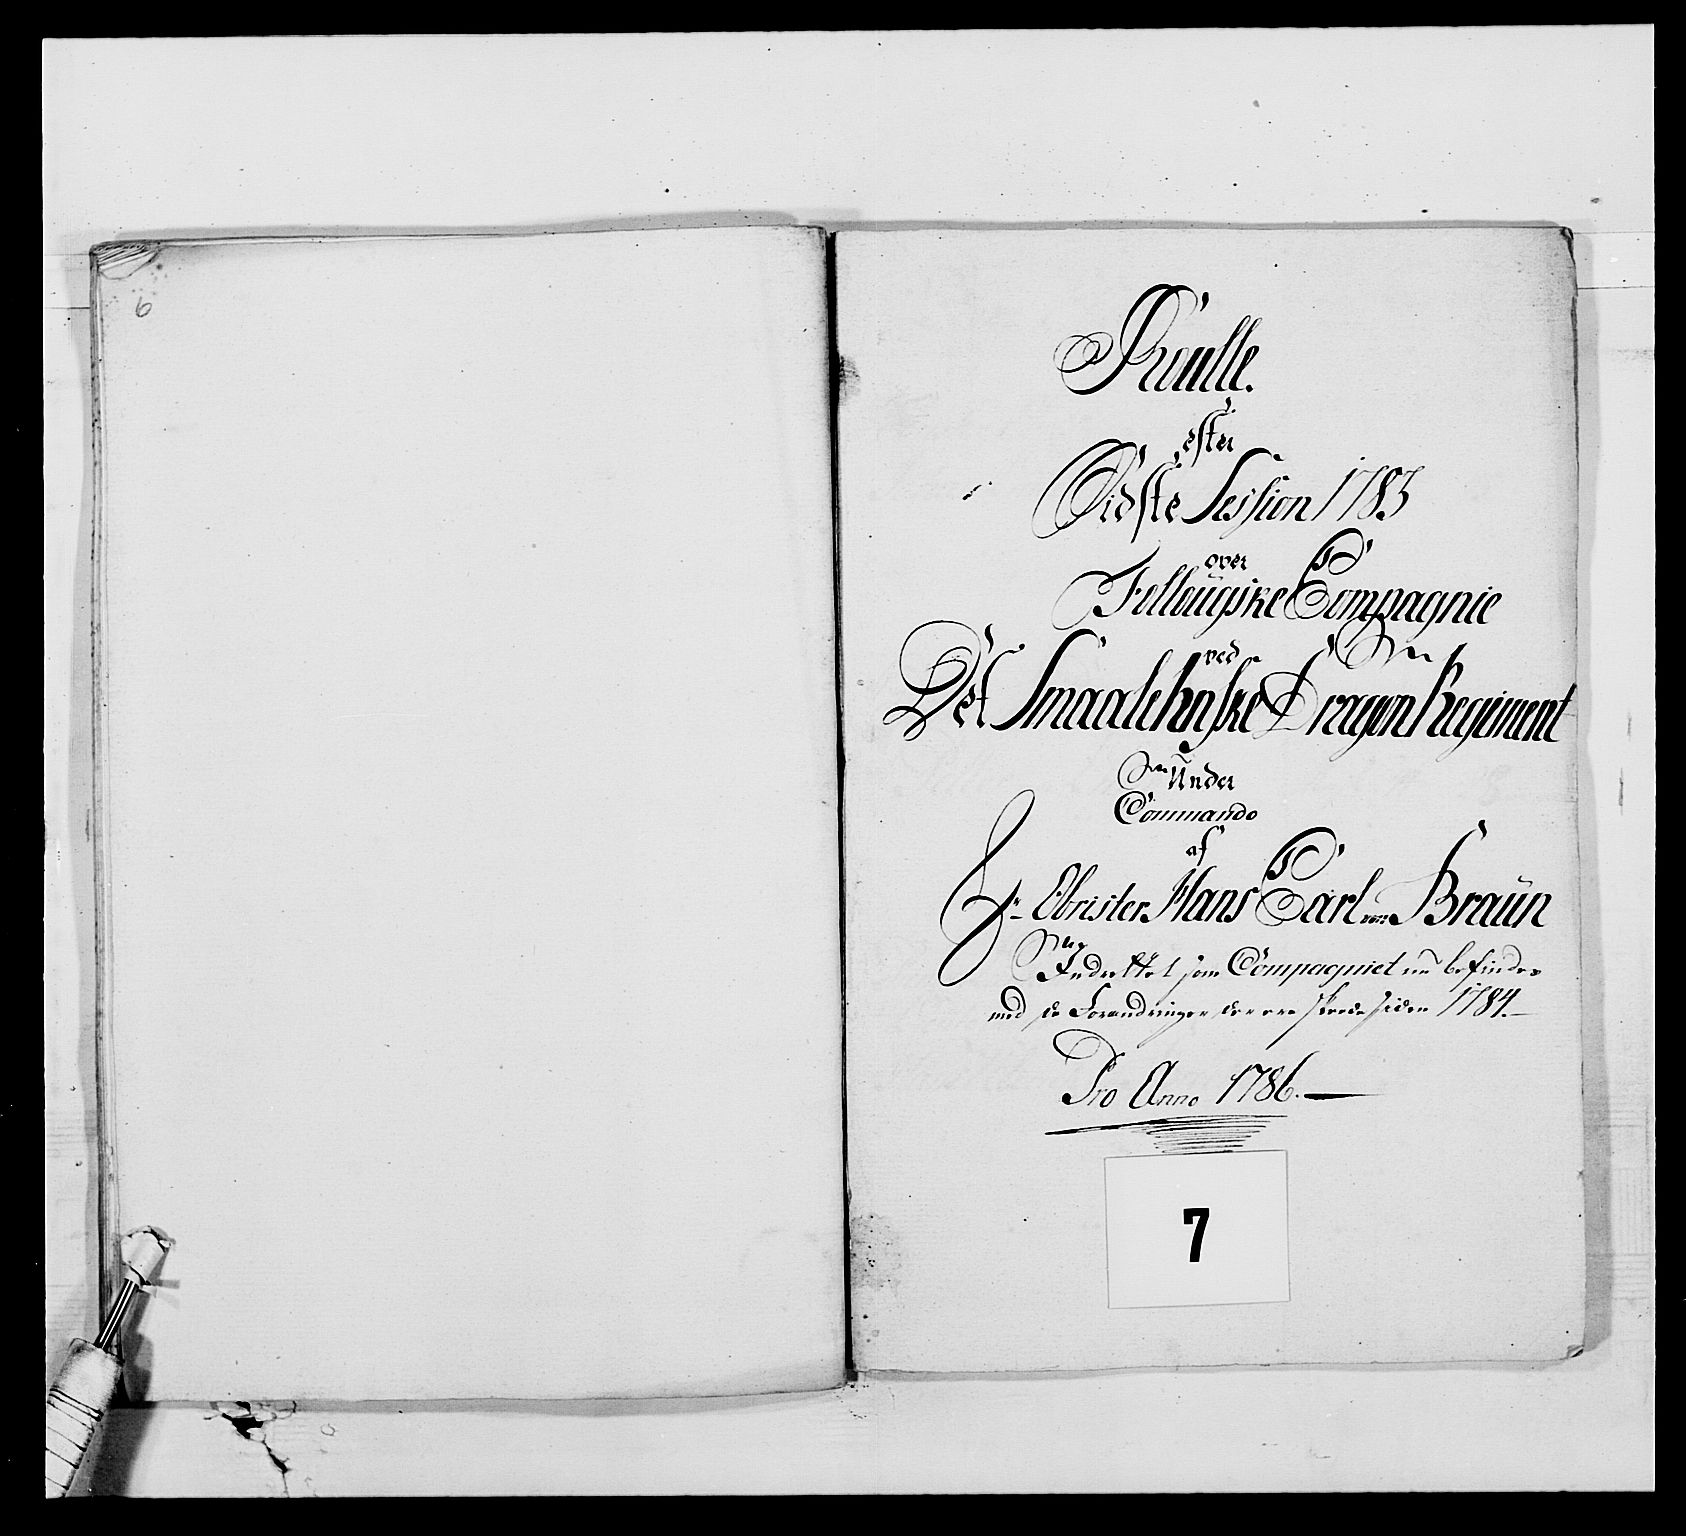 6
Roulle.
efter
Sidste Session 1783
over
Follougske Compagnie
ved
Det Smaalehnske Dragon Regiment
Under
Commando
af
Hr. Obrister Hans Carl von Braün
Indrettet som Compagniet nu befindes
med de Forandringer der ere skeede siden 1784.
Pro Anno 1786.
7